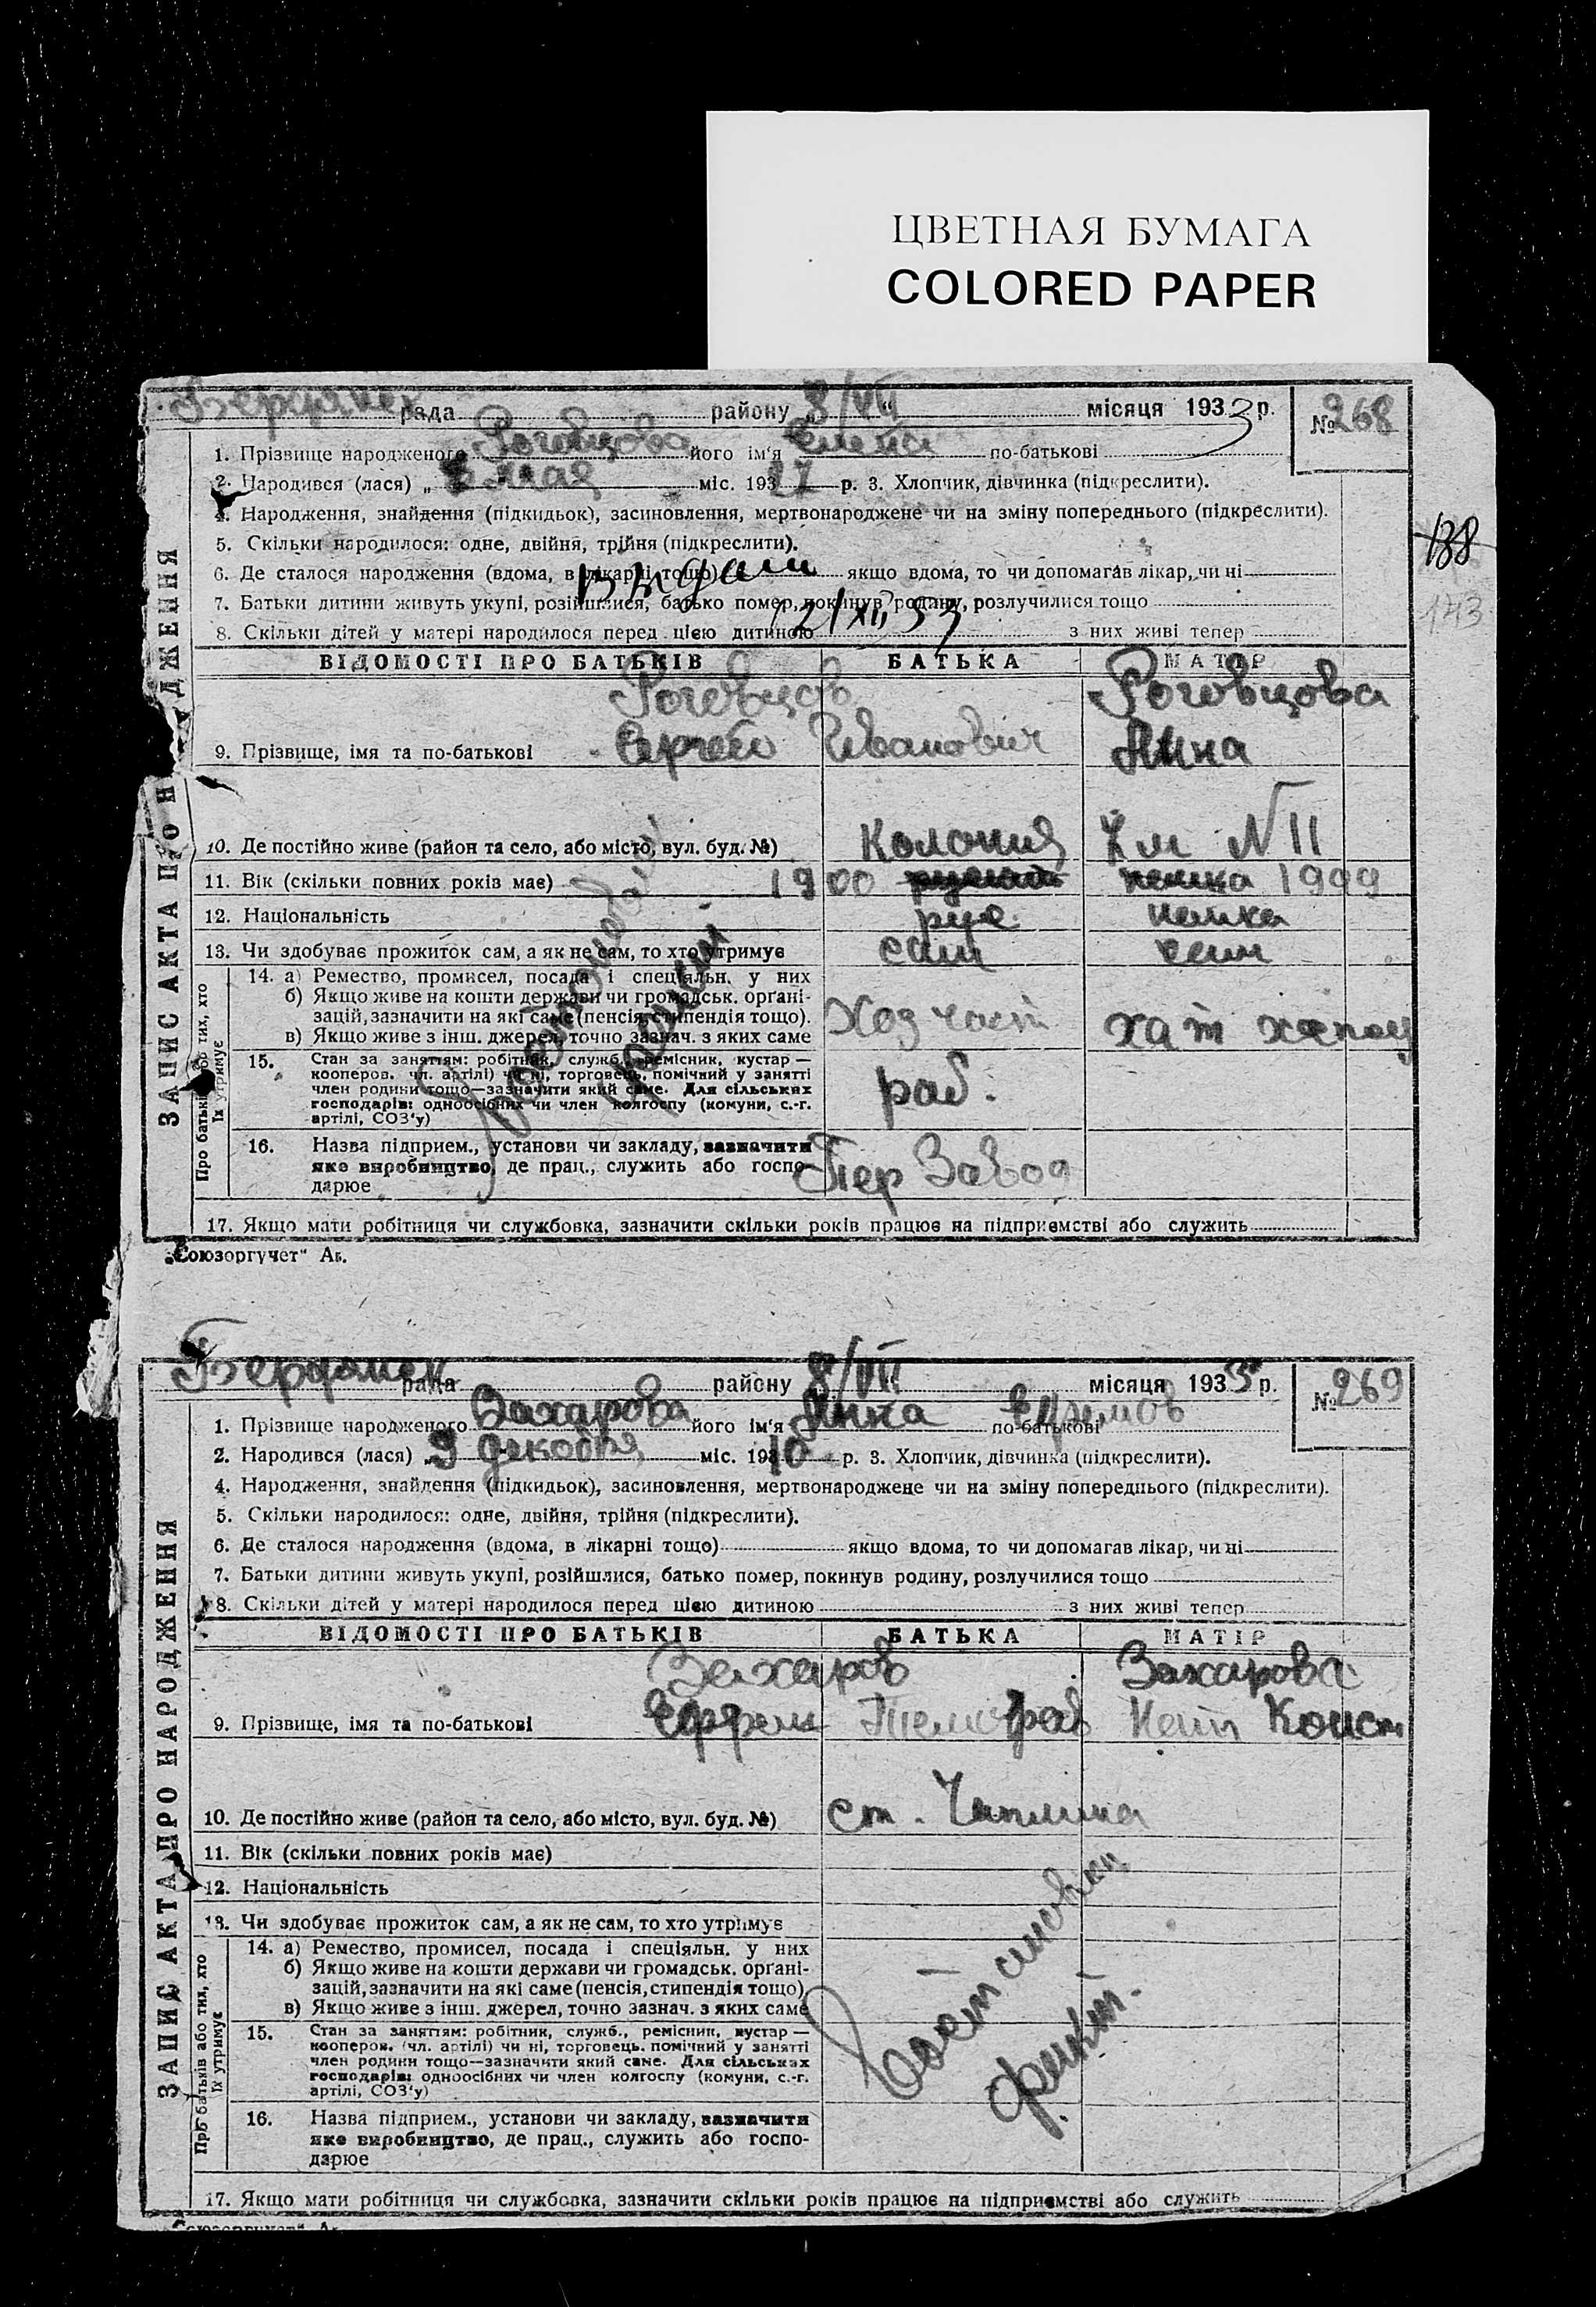 ЦВЕТНАЯ БУМАГА
COLORED PAPER
Бердянск рада району 8/VII місяця 1933 р. № 268
1. Прізвище народженого Роговцова його ім'я по-батькові
2. Народився (лася) „ 3 мая міс. 193 27 р. 3. Хлопчик, дівчинка (підкреслити).
4. Народження, знайдення (підкидьок), засиновлення, мертвонароджене чи на зміну попереднього (підкреслити).
5. Скільки народилося: одне, двійня, трійня (підкреслити).
6. Де сталося народження (вдома, в лікарні тощо) якщо вдома, то чи допомагав лікар, чи ні
138
7. Батьки дитини живуть укупі, розійшлися, батько помер, покинув родину, розлучилися тощо
143
21/XII 53
8. Скільки дітей у матері народилося перед цією дитиною з них живі тепер
ВІДОМОСТІ ПРО БАТЬКІВ БАТЬКА МАТІР
Роговцов Роговцова
9. Прізвище, імя та по-батькові Сергей Иванович Анна
10. Де постійно живе (район та село, або місто, вул. буд. №) Колония N 11
11. Вік (скільки повних років має) 1900 немка 1909
12. Національність рус немка
13. Чи здобуває прожиток сам, а як не сам, то хто утримує сам
14. а) Ремество, промисел, посада і спеціяльн. у них
б) Якщо живе на кошти держави чи громадськ. орґані-
зацій, зазначити на які саме (пенсія, стипендія тощо). Хоз част
в) Якщо живе з інш. джерел, точно зазнач. з яких саме
15. Стан за заняттям: робітник, служб., ремісник, кустар —
кооперов. чл. артілі) чи ні, торговець, помічний у занятті
член родини тощо—зазначити який саме. Для сільських
господарів: одноосібних чи член колгоспу (комуни, с.-г.
артілі, СОЗ'у) раб.
16. Назва підприєм., установи чи закладу, зазначити
яке виробництво, де прац., служить або госпо-
дарює Пер Завод
17. Якщо мати робітниця чи службовка, зазначити скільки років працює на підприємстві або служить
ЗАПИС АКТА ПРО Н ДЖЕННЯ
Про батьків або тих, хто
їх утримує
„Союзоргучет“ Ак.
Бердянск рада району 8/VII місяця 1933 р. № 269
1. Прізвище народженого Захарова його ім'я Анна по-батькові Ефимов
2. Народився (лася) „ 9 декабря міс. 1910 р. 3. Хлопчик, дівчинка (підкреслити).
4. Народження, знайдення (підкидьок), засиновлення, мертвонароджене чи на зміну попереднього (підкреслити).
5. Скільки народилося: одне, двійня, трійня (підкреслити).
6. Де сталося народження (вдома, в лікарні тощо) якщо вдома, то чи допомагав лікар, чи ні
7. Батьки дитини живуть укупі, розійшлися, батько помер, покинув родину, розлучилися тощо
8. Скільки дітей у матері народилося перед цією дитиною з них живі тепер
ВІДОМОСТІ ПРО БАТЬКІВ БАТЬКА МАТІР
Захаров Захарова
9. Прізвище, імя та по-батькові Конст
10. Де постійно живе (район та село, або місто, вул. буд. №) ст. Чаплина
11. Вік (скільки повних років має)
12. Національність
13. Чи здобуває прожиток сам, а як не сам, то хто утримує
14. а) Ремество, промисел, посада і спеціяльн. у них
б) Якщо живе на кошти держави чи громадськ. орґані-
зацій, зазначити на які саме (пенсія, стипендія тощо).
в) Якщо живе з інш. джерел, точно зазнач. з яких саме
15. Стан за заняттям: робітник, служб., ремісник, кустар —
кооперов. (чл. артілі) чи ні, торговець, помічний у занятті
член родини тощо—зазначити який саме. Для сільських
господарів: одноосібних чи член колгоспу (комуни, с.-г.
артілі, СОЗ'у)
16. Назва підприєм., установи чи закладу, зазначити
яке виробництво, де прац., служить або госпо-
дарює
17. Якщо мати робітниця чи службовка, зазначити скільки років працює на підприємстві або служить
ЗАПИС АКТА ПРО НАРОДЖЕННЯ
Про батьків або тих, хто
їх утримує